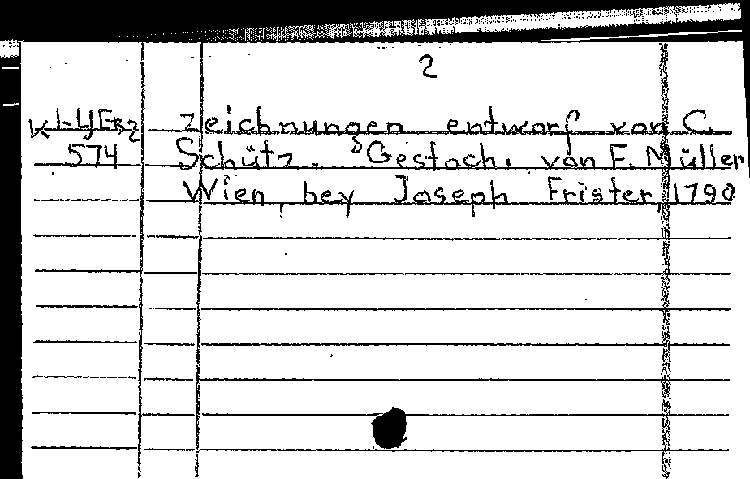 2
zeichnungen entworf von C.
574 Schütz. Gestoch. von F. Müller
Wien, bey Joseph Frister, 1790